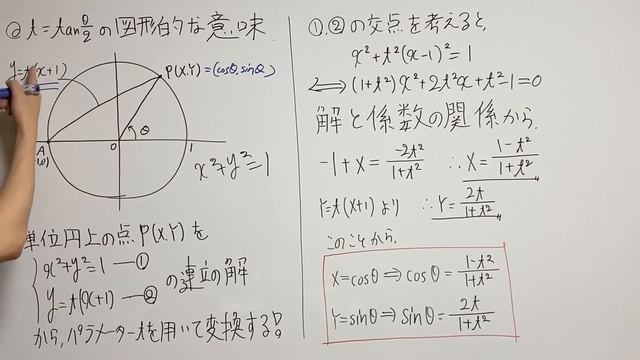 @ t = tan θ/2 の図形的な意味
y=t(x+1)
P(X,Y)=(cosθ, sinθ)
A
θ
0
1
x²+y²=1
単位円上の点P(X,Y)を
x²+y²=1 ー①
y=t(x+1) ー②
の連立の解
から,パラメーターtを用いて変換する!。
①,②の交点を考えると,
x²+t²(x-1)²=1
⟺(1+t²)x²+2t²x+t²-1=0
解と係数の関係から,
-1+X = -2t²/1+t² ∴X = 1-t²/1+t²
Y=t(X+1)より ∴Y = 2t/1+t²
このことから,
X=cosθ⇒cosθ = 1-t²/1+t²
Y=sinθ⇒sinθ = 2t/1+t²